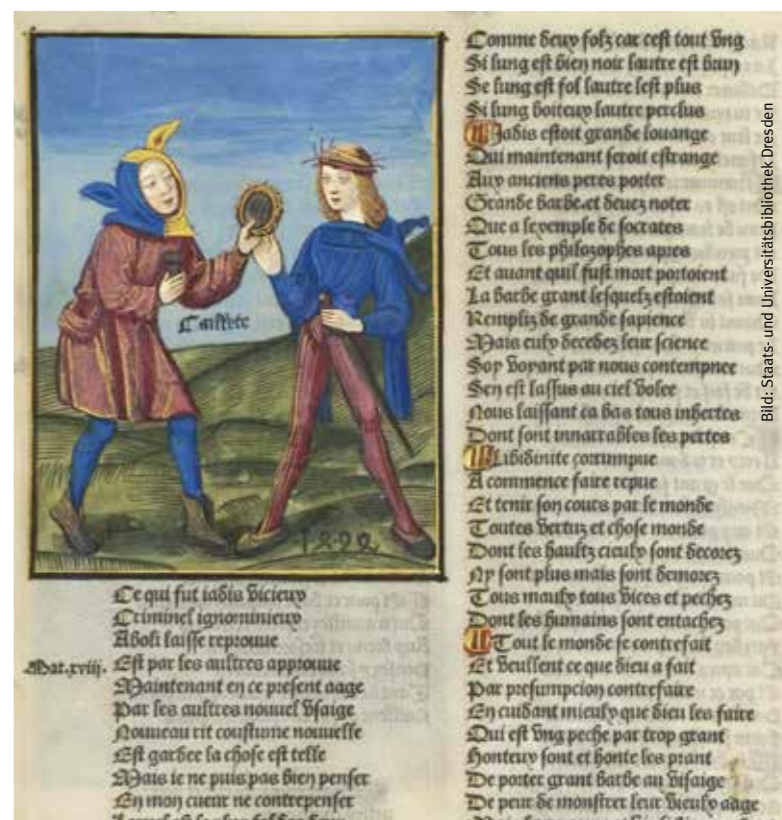 Ce qui fut iadis vicieux
Criminel ignominieux
Aboli laisse reprouue
Mat.xviij.
Est par les aultres approuue
Maintenant en ce present aage
Par les aultres nouuel vsaige
Nouueau rit coustume nouuelle
Est gardee la chose est telle
Mais ie ne puis pas bien penser
En mon cueur ne contrepenser
Comme deux folz car cest tout vng
Si lung est bien noir lautre est brun
Se lung est fol lautre lest plus
Si lung boiteux lautre perclus
Iadis estoit grande louange
Qui maintenant seroit estrange
Aux anciens peres porter
Grande barbe.et deuez noter
Que a lexemple de socrates
Tous les philozophes apres
Et auant quil fust mort portoient
La barbe grant lesquelz estoient
Rempliz de grande sapience
Mais eulx decedez leur science
Soy voyant par nous contempnee
Sen est lassus au ciel volee
Nous laissant ca bas tous inhertes
Dont sont innarrables les pertes
Libidinite corrumpue
A commence faire repue
Et tenir son cours par le monde
Toutes vertuz et chose monde
Dont les haultz cieulx sont decorez
Ny sont plus mais sont demorez
Tous maulx tous vices et pechez
Dont les humains sont entachez
Tout le monde se contrefait
Et veullent ce que dieu a fait
Par presumpcion contrefaire
En cuidant mieulx que dieu les faire
Qui est vng peche par trop grant
Honteux sont et honte les prant
De porter grant barbe au visaige
De peur de monstrer leur vieulx aage
Bild: Staats- und Universitätsbibliothek Dresden